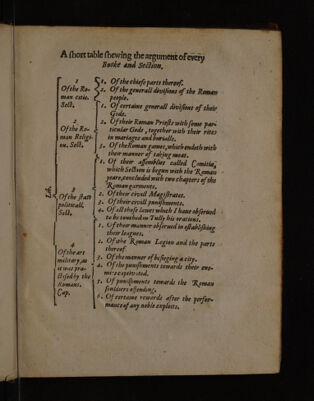 A short table shewing the argument of every
Booke and Section.
Lib.
1
Of the Ro-
man citie.
Sect.
1. Of the chiefe parts thereof.
2. Of the generall divisions of the Roman
people.
2
Of the Ro-
man Religi-
on. Sect.
1. Of certaine generall divisions of their
Gods.
2. Of their Roman Priests with some par-
ticular Gods, together with their rites
in mariages and burialls.
3. Of the Roman games, which endeth with
their manner of taking meat.
3
Of the state
politicall.
Sect.
1. Of their assemblies called Comitia,
which Section is begun with the Roman
yeare, concluded with two chapters of the
Roman garments.
2. Of their civill Magistrates.
3. Of their civill punishments.
4. Of all those lawes which I have observed
to be touched in Tully his orations.
4
Of the art
military, as
it was pra-
ctised by the
Romans.
Cap.
1. Of their manner observed in establishing
their leagues.
2. Of the Roman Legion and the parts
thereof.
3. Of the manner of besieging a city.
4. Of the punishments towards their ene-
mies captivated.
5. Of punishments towards the Roman
souldiers offending.
6. Of certaine rewards after the perfor-
mance of any noble exploits.